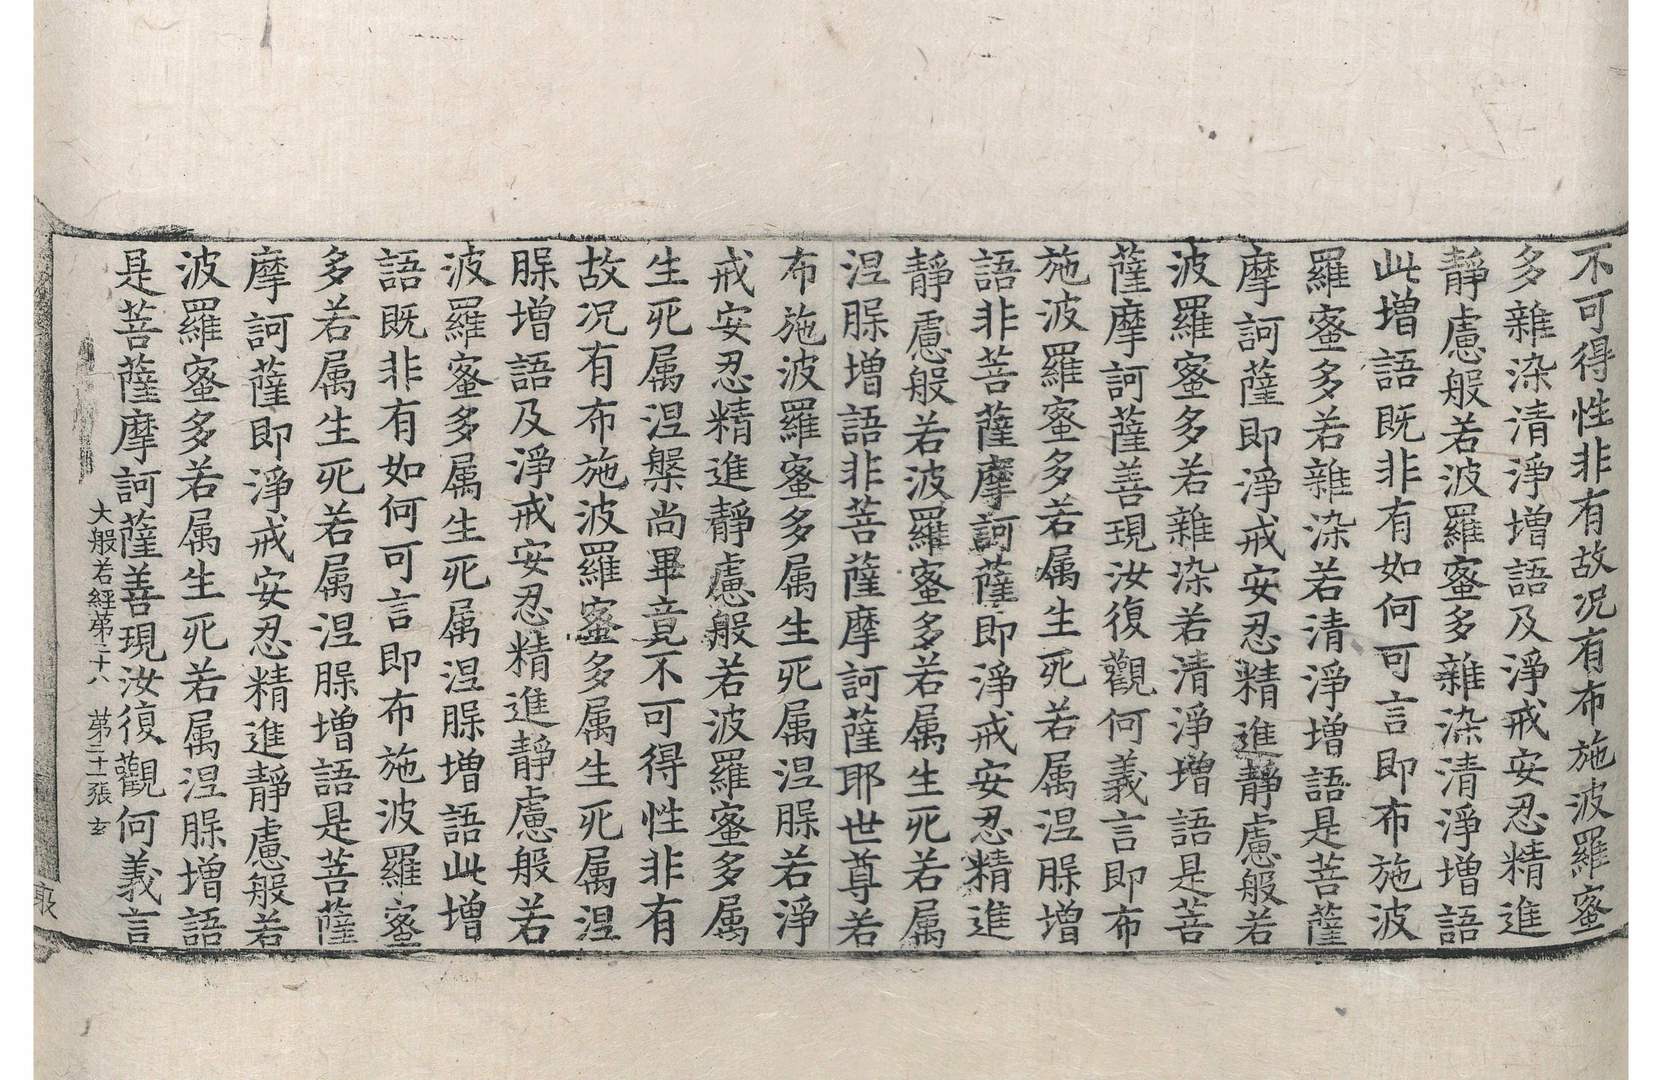 不可得性非有故况有布施波羅蜜
多雜染清淨增語及淨戒安忍精進
靜慮般若波羅蜜多雜染清淨增語
此增語既非有如何可言即布施波
羅蜜多若雜染若清淨增語是菩薩
摩訶薩即淨戒安忍精進靜慮般若
波羅蜜多若雜染若清淨增語是菩
薩摩訶薩善現汝復觀何義言即布
施波羅蜜多若属生死若属涅槃增
語非菩薩摩訶薩即淨戒安忍精進
靜慮般若波羅蜜多若属生死若属
涅槃增語非菩薩摩訶薩耶世尊若
布施波羅蜜多属生死属涅槃若淨
戒安忍精進靜慮般若波羅蜜多属
生死属涅槃尚畢竟不可得性非有
故况有布施波羅蜜多属生死属涅
槃增語及淨戒安忍精進靜慮般若
波羅蜜多属生死属涅槃增語此增
語既非有如何可言即布施波羅蜜
多若属生死若属涅槃增語是菩薩
摩訶薩即淨戒安忍精進靜慮般若
波羅蜜多若属生死若属涅槃增語
是菩薩摩訶薩善現汝復觀何義言
大般若經第二十八 第二十張 玄